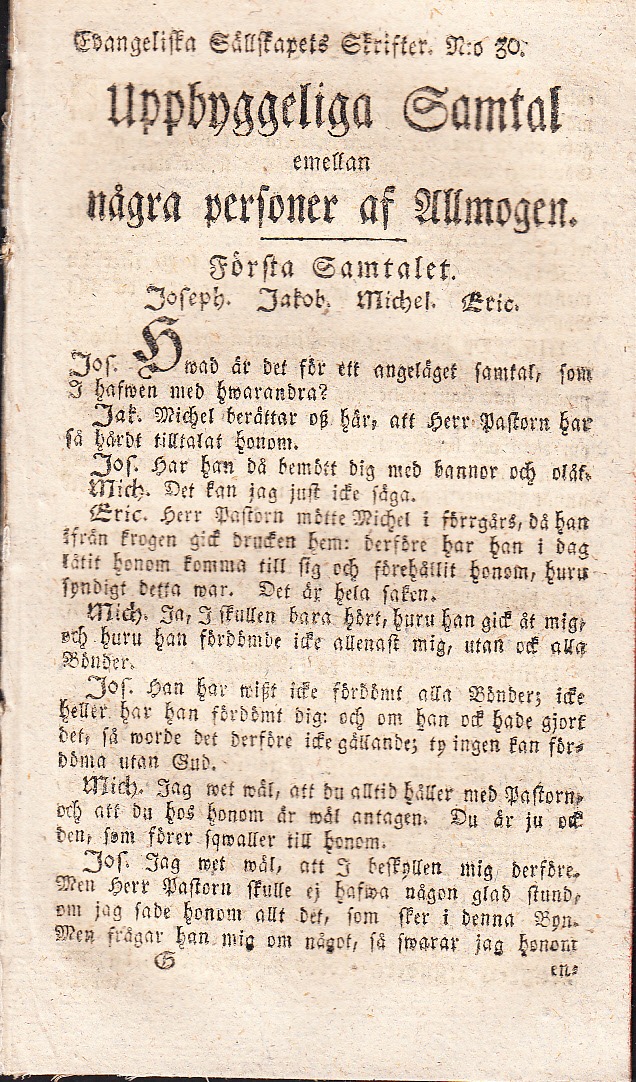 Evangeliska Sällskapets Skrifter. N:o 30.
Uppbyggeliga Samtal
emellan
några personer af Allmogen.
Första Samtalet.
Joseph. Jakob. Michel. Eric.
Jos. Hwad är det för ett angeläget samtal, som
I hafwen med hwarandra?
Jak. Michel berättar oß här, att Herr Pastorn har
så hårdt tilltalat honom.
Jos. Har han då bemött dig med bannor och olåt.
Mich. Det kan jag just icke säga.
Eric. Herr Pastorn mötte Michel i förrgårs, då han
ifrån krogen gick drucken hem: derföre har han i dag
låtit honom komma till sig och förehållit honom, huru
syndigt detta war. Det är hela saken.
Mich. Ja, I skullen bara hört, huru han gick åt mig,
och huru han fördömde icke allenast mig, utan ock alla
Bönder.
Jos. Han har wißt icke fördömt alla Bönder; icke
heller har han fördömt dig: och om han ock hade gjort
det, så worde det derföre icke gällande; ty ingen kan för-
döma utan Gud.
Mich. Jag wet wäl, att du alltid håller med Pastorn,
och att du hos honom är wäl antagen. Du är ju ock
den, som förer sqwaller till honom.
Jos. Jag wet wäl, att I beskyllen mig derföre.
Men Herr Pastorn skulle ej hafwa någon glad stund,
om jag sade honom allt det, som sker i denna Byn.
Men frågar han mig om något, så swarar jag honom
G
en-